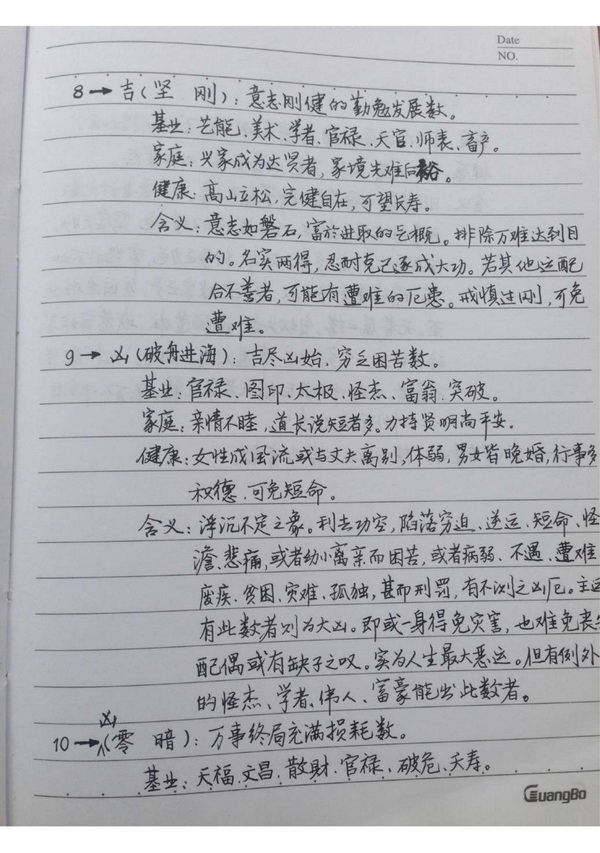 Date
NO.
8→吉(坚 刚):意志刚健的勤勉发展数。
基业:艺能、美术、学者、官禄、天官、师表、畜产。
家庭:兴家成为达贤者,家境先难后裕。
健康:高山立松,完健自在,可望长寿。
含义:意志如磐石,富於进取的气概。排除万难达到目
的。名实两得,忍耐克己逐成大功。若其他运配
合不善者,可能有遭难的厄患。戒慎过刚,可免
遭难。
9→凶(破舟进海):吉尽凶始,穷乏困苦数。
基业:官禄、图印、太极、怪杰、富翁、突破。
家庭:亲情不睦,道长说短者多。力持贤明尚平安。
健康:女性成风流或与丈夫离别,体弱,男女皆晚婚,行事多
积德,可免短命。
含义:浮沉不定之象。利去功空,陷落穷迫、逆运、短命、怪
澹、悲痛,或者幼小离亲而困苦,或者病弱、不遇、遭难
废疾、贫困、灾难、孤独,甚而刑罚,有不测之凶厄。主运
有此数者则为大凶。即或一身得免灾害,也难免丧失
配偶或有缺子之叹。实为人生最大恶运。但有例外
的怪杰、学者、伟人、富豪能出此数者。
10→凶(零 暗):万事终局充满损耗数。
基业:天福、文昌、散财、官禄、破危、夭寿。
GuangBo